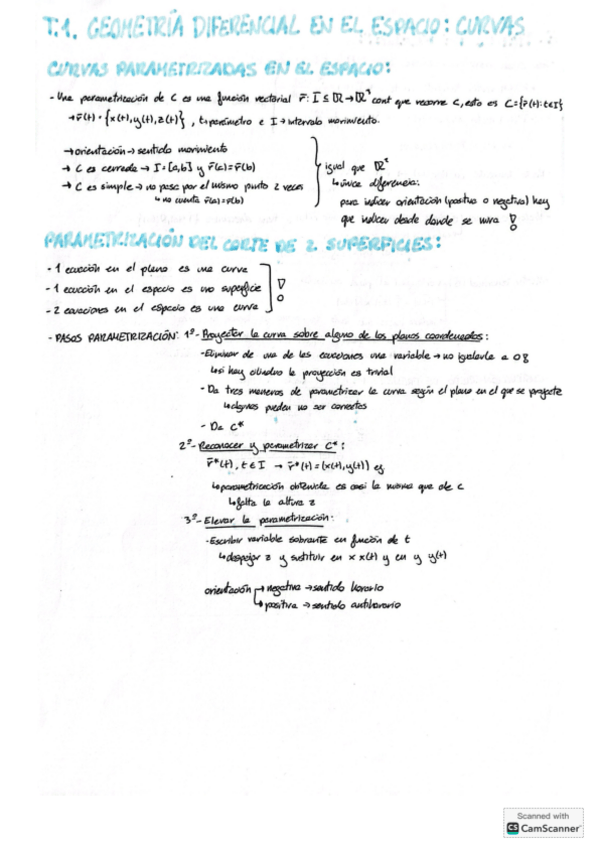 T.1. GEOMETRÍA DIFERENCIAL EN EL ESPACIO: CURVAS
CURVAS PARAMETRIZADAS EN EL ESPACIO:
- Una parametrización de C es una función vectorial r̄: I ⊆ ℝ → ℝ³ cont que recorre C, esto es C = {r̄(t): t ∈ I}
→ r̄(t) = {x(t), y(t), z(t)}, t → parámetro e I → intervalo movimiento.
→ orientación → sentido movimiento
→ C es cerrada → I = [a,b] y r̄(a) = r̄(b)
→ C es simple → no pasa por el mismo punto 2 veces
↳ no cuenta r̄(a) = r̄(b)
igual que ℝ²
↳ única diferencia:
para indicar orientación (positiva o negativa) hay
que indicar desde donde se mira !
PARAMETRIZACIÓN DEL CORTE DE 2 SUPERFICIES:
- 1 ecuación en el plano es una curva
- 1 ecuación en el espacio es una superficie
- 2 ecuaciones en el espacio es una curva
!
- PASOS PARAMETRIZACIÓN: 1º- Proyectar la curva sobre alguno de los planos coordenados:
- Eliminar de una de las ecuaciones una variable → no igualarla a 0!
↳ si hay cilindro la proyección es trivial
- Da tres maneras de parametrizar la curva según el plano en el que se proyecte
↳ algunas pueden no ser correctas
- Da C*
2º- Reconocer y parametrizar C*:
r̄*(t), t ∈ I → r̄*(t) = (x(t), y(t)) ej
↳ parametrización obtenida es casi la misma que de C
↳ falta la altura z
3º- Elevar la parametrización:
- Escribir variable sobrante en función de t
↳ despejar z y sustituir en x x(t) y en y y(t)
orientación → negativa → sentido horario
↳ positiva → sentido antihorario
Scanned with
CS CamScanner